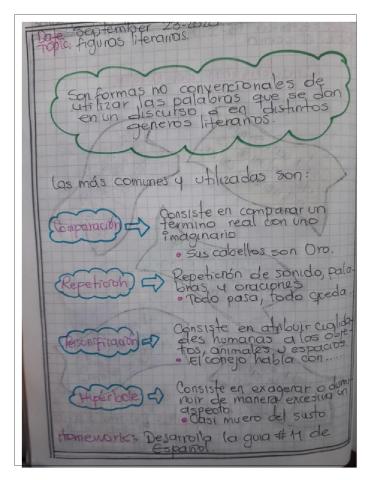 Date: September 23-2020
Topic: figuras literarias.
Son formas no convencionales de
utilizar las palabras que se dan
en un discurso o en distintos
generos literarios.
Las más comunes y utilizadas son:
Comparación
Consiste en comparar un
termino real con uno
imaginario
• Sus cabellos son Oro.
Repetición
Repetición de sonido, pala-
bras y oraciones
• Todo pasa, todo queda.
Personificación
Consiste en atribuir cualida-
des humanas a los obje-
tos, animales, y espacios.
• El conejo habla con......
Hipérbole
Consiste en exagerar o dismi-
nuir de manera excesiva un
aspecto.
• Casi muero del susto
Homework: Desarrolla la guia #11 de
Español.